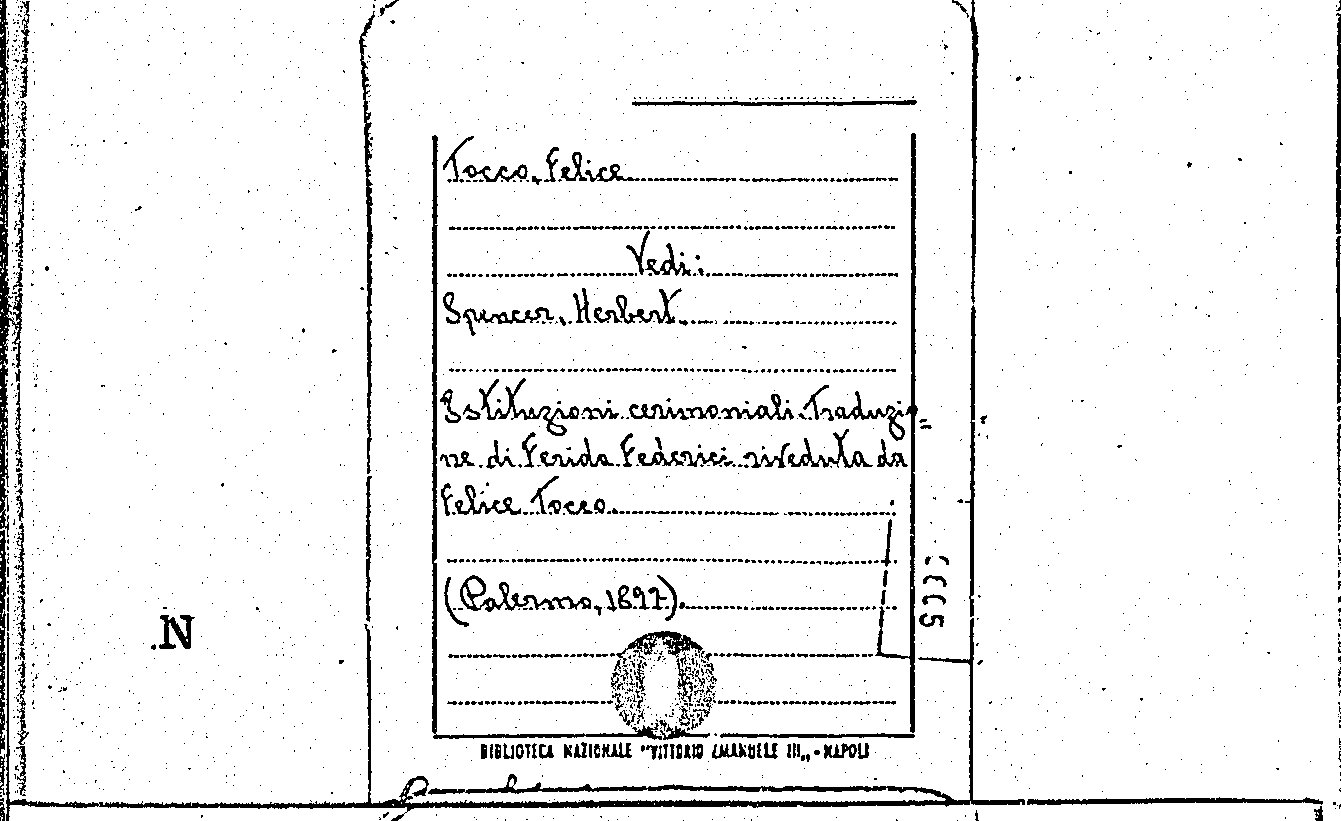 Tocco, Felice
Vedi:
Spencer, Herbert.
Istituzioni cerimoniali. Traduzio=
ne di Ferida Federici riveduta da
Felice Tocco.
(Palermo, 1897).
.N
BIBLIOTECA NAZIONALE "VITTORIO EMANUELE III„ - NAPOLI